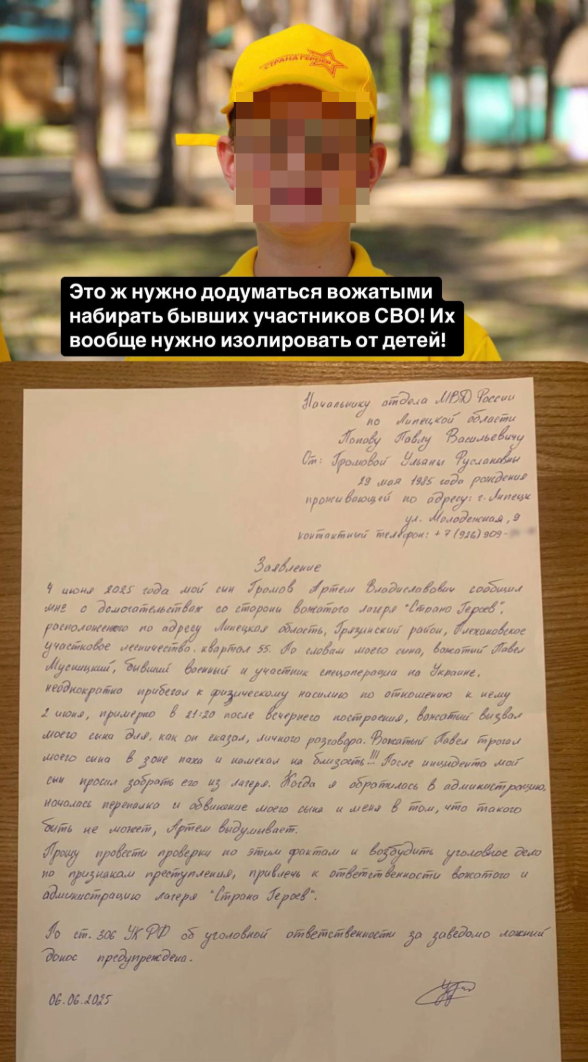 СТРАНА ГЕРОЕВ
Это ж нужно додуматься вожатыми
набирать бывших участников СВО! Их
вообще нужно изолировать от детей!
Начальнику отдела МВД России
по Липецкой области
Попову Павлу Васильевичу
От: Громовой Ульяны Руслановны
29 мая 1985 года рождения
проживающей по адресу: г. Липецк
ул. Молодежная, 9
контактный телефон: +7 (926) 909-
Заявление
4 июня 2025 года мой сын Громов Артем Владиславович сообщил
мне о домогательствах со стороны вожатого лагеря "Страна Героев",
расположеного по адресу Липецкая область, Грязинский район, Плехановское
участковое лесничество. квартал 55. По словам моего сына, вожатый Павел
Мусницкий, бывший военный и участник спецоперации на Украине,
неоднократно прибегал к физическому насилию по отношению к нему
2 июня, примерно в 21:20 после вечернего построения, вожатый вызвал
моего сына для, как он сказал, личного разговора. Вожатый Павел трогал
моего сына в зоне паха и намекал на близость!!! После инцидента мой
сын просил забрать его из лагеря. Когда я обратилась в администрацию,
началась перепалка и обвинение моего сына и меня в том, что такого
быть не может, Артем выдумывает.
Прошу провести проверку по этим фактам и возбудить уголовное дело
по признакам преступления, привлечь к ответственности вожатого и
администрацию лагеря "Страна Героев".
По ст. 306 УК РФ об уголовной ответственности за заведомо ложный
донос предупреждена.
06.06.2025